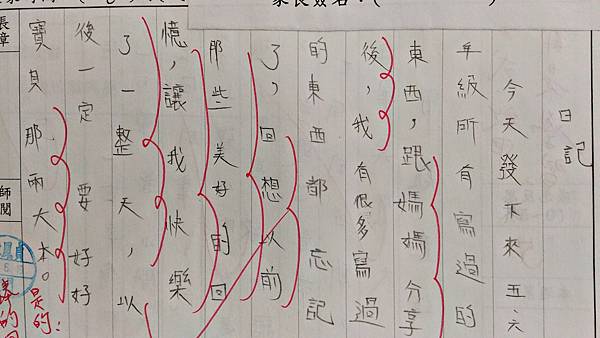 家長簽名：(
日記
今天發下來五、六
年級所有寫過的
東西，跟媽媽分享
後，我有很多寫過
的東西都忘記
了，回想以前
那些美好的回
憶，讓我快樂
了一整天，以
後一定要好好
寶貝那兩大本。
是的：
長章
師閱